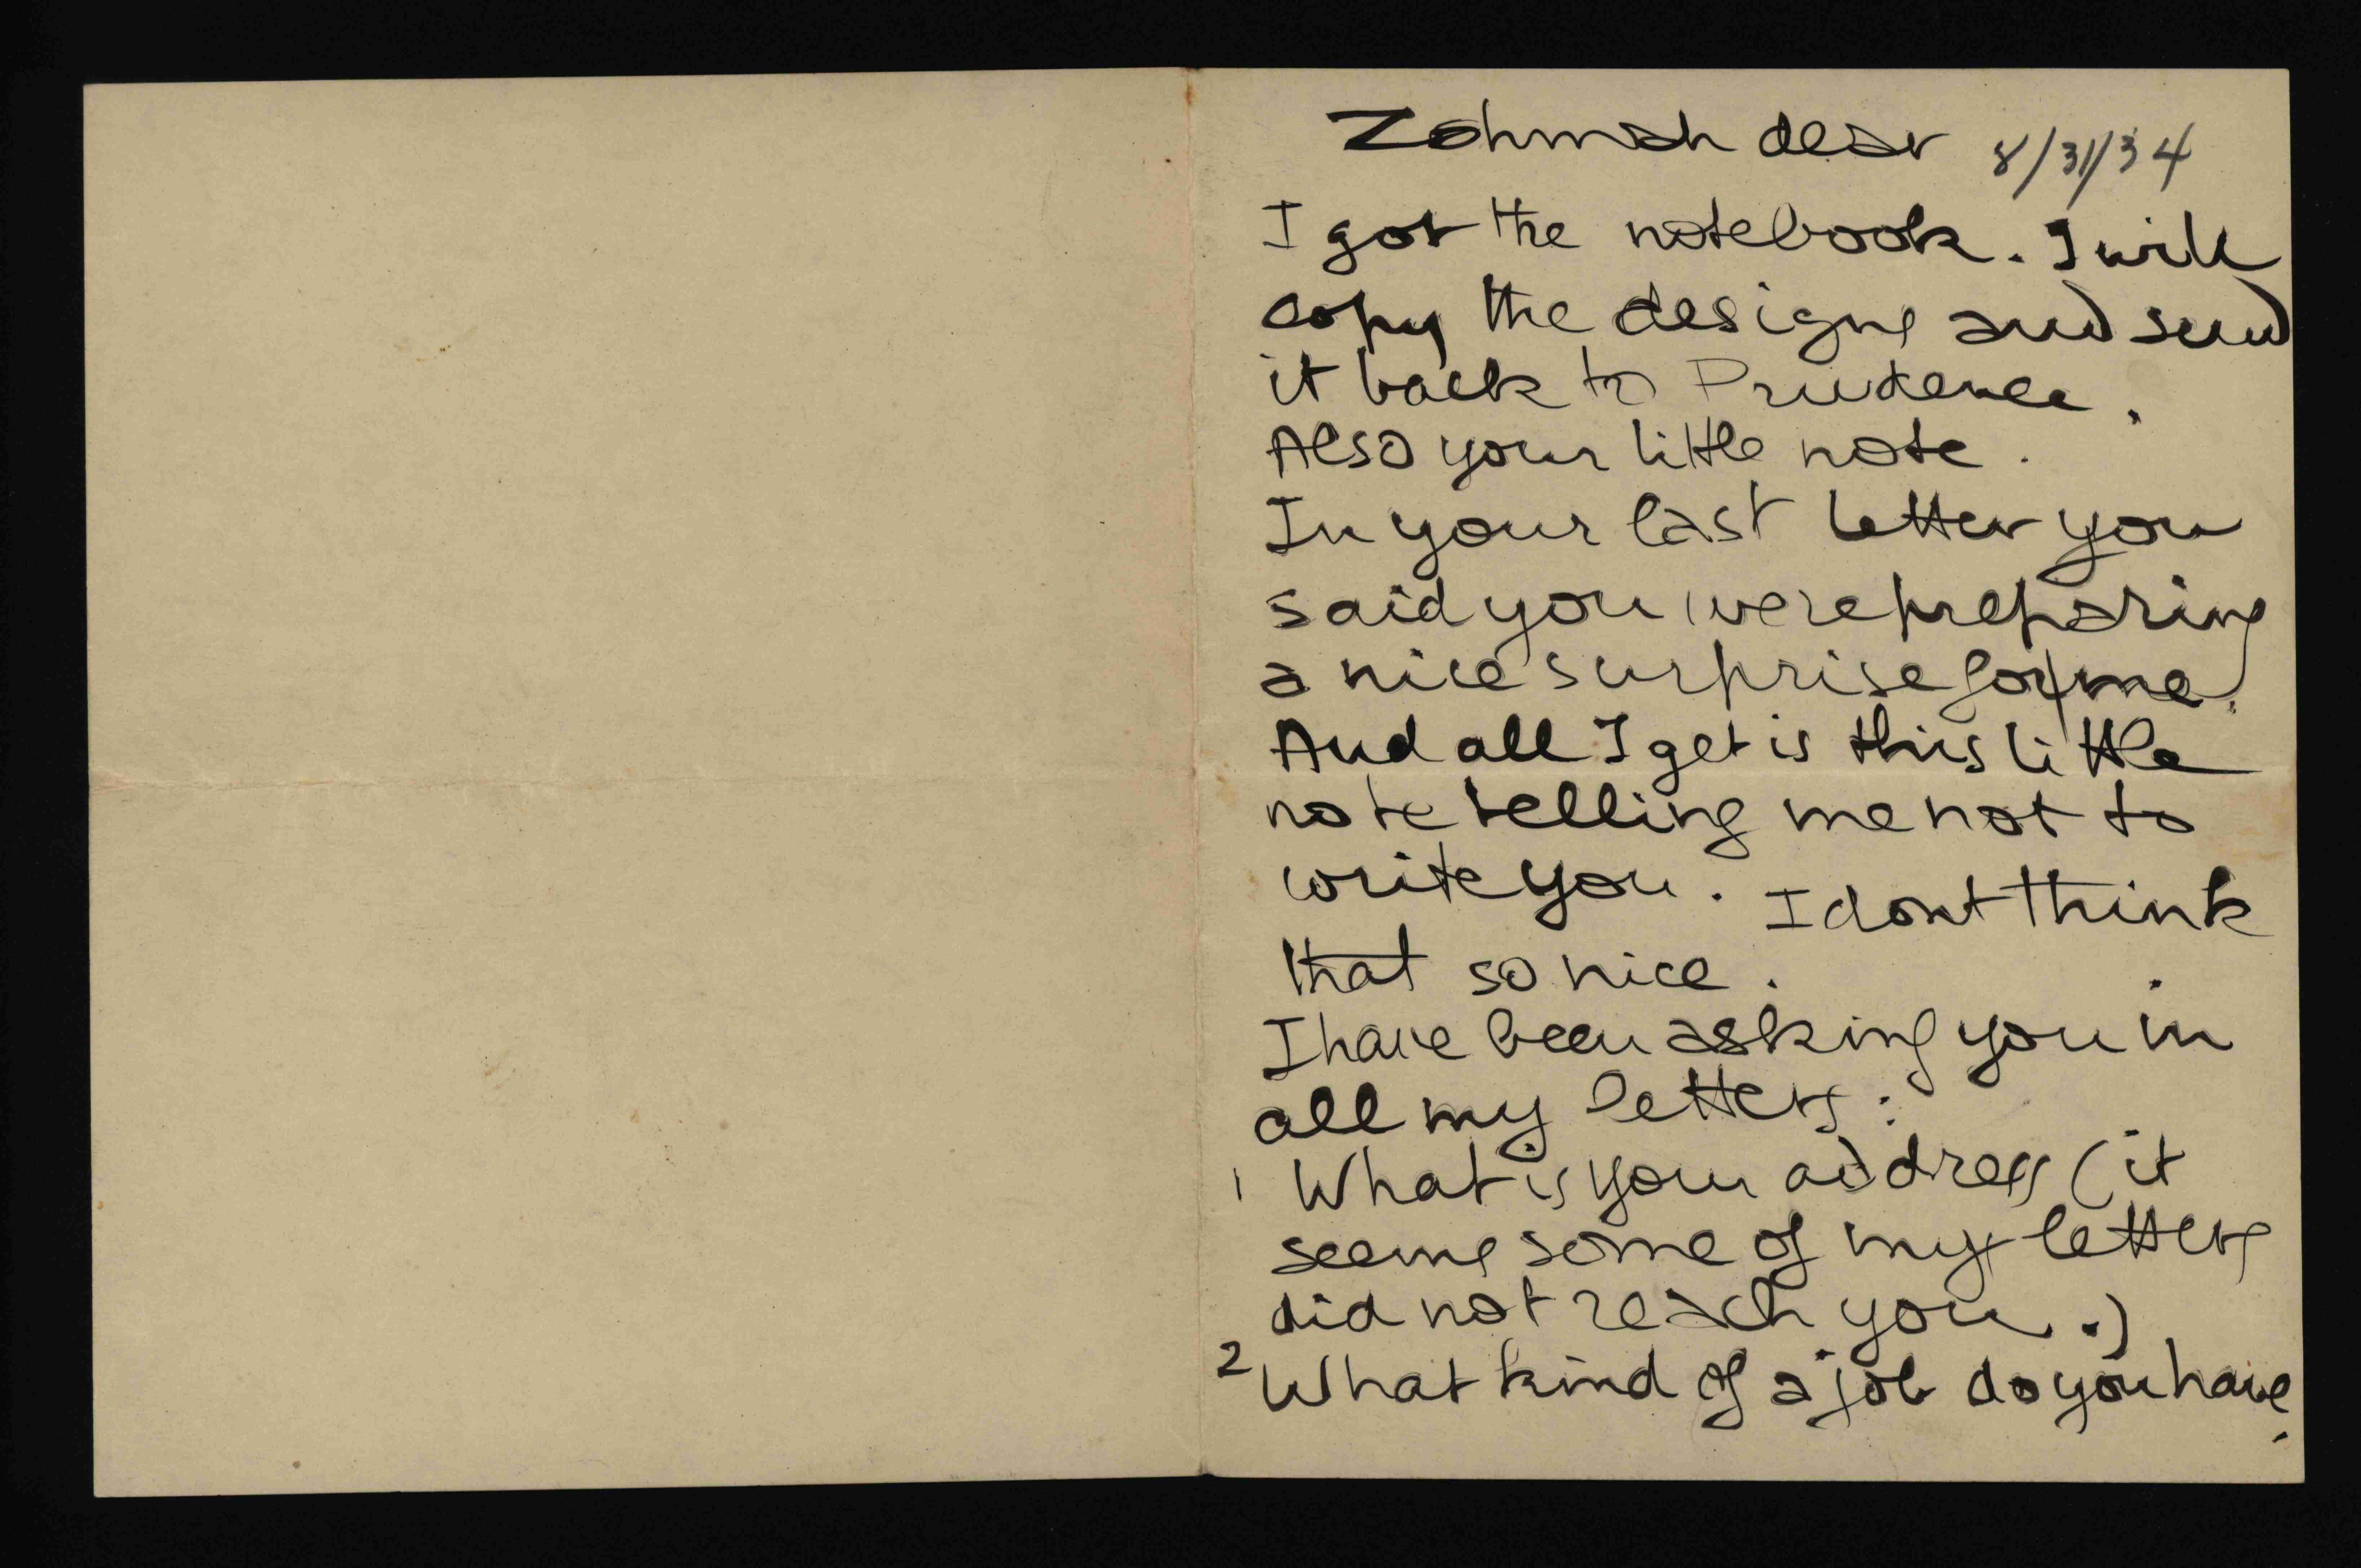 Zohmah dear 8/31/34
I got the notebook. I will
copy the designs and send
it back to Prudence.
Also your little note.
In your last letter you
said you were preparing
a nice surprise for me.
And all I get is this little
note telling me not to
write you. I dont think
that so nice.
I have been asking you in
all my letters:
1 What is your address (it
seems some of my letters
did not reach you.)
2 What kind of a job do you have.